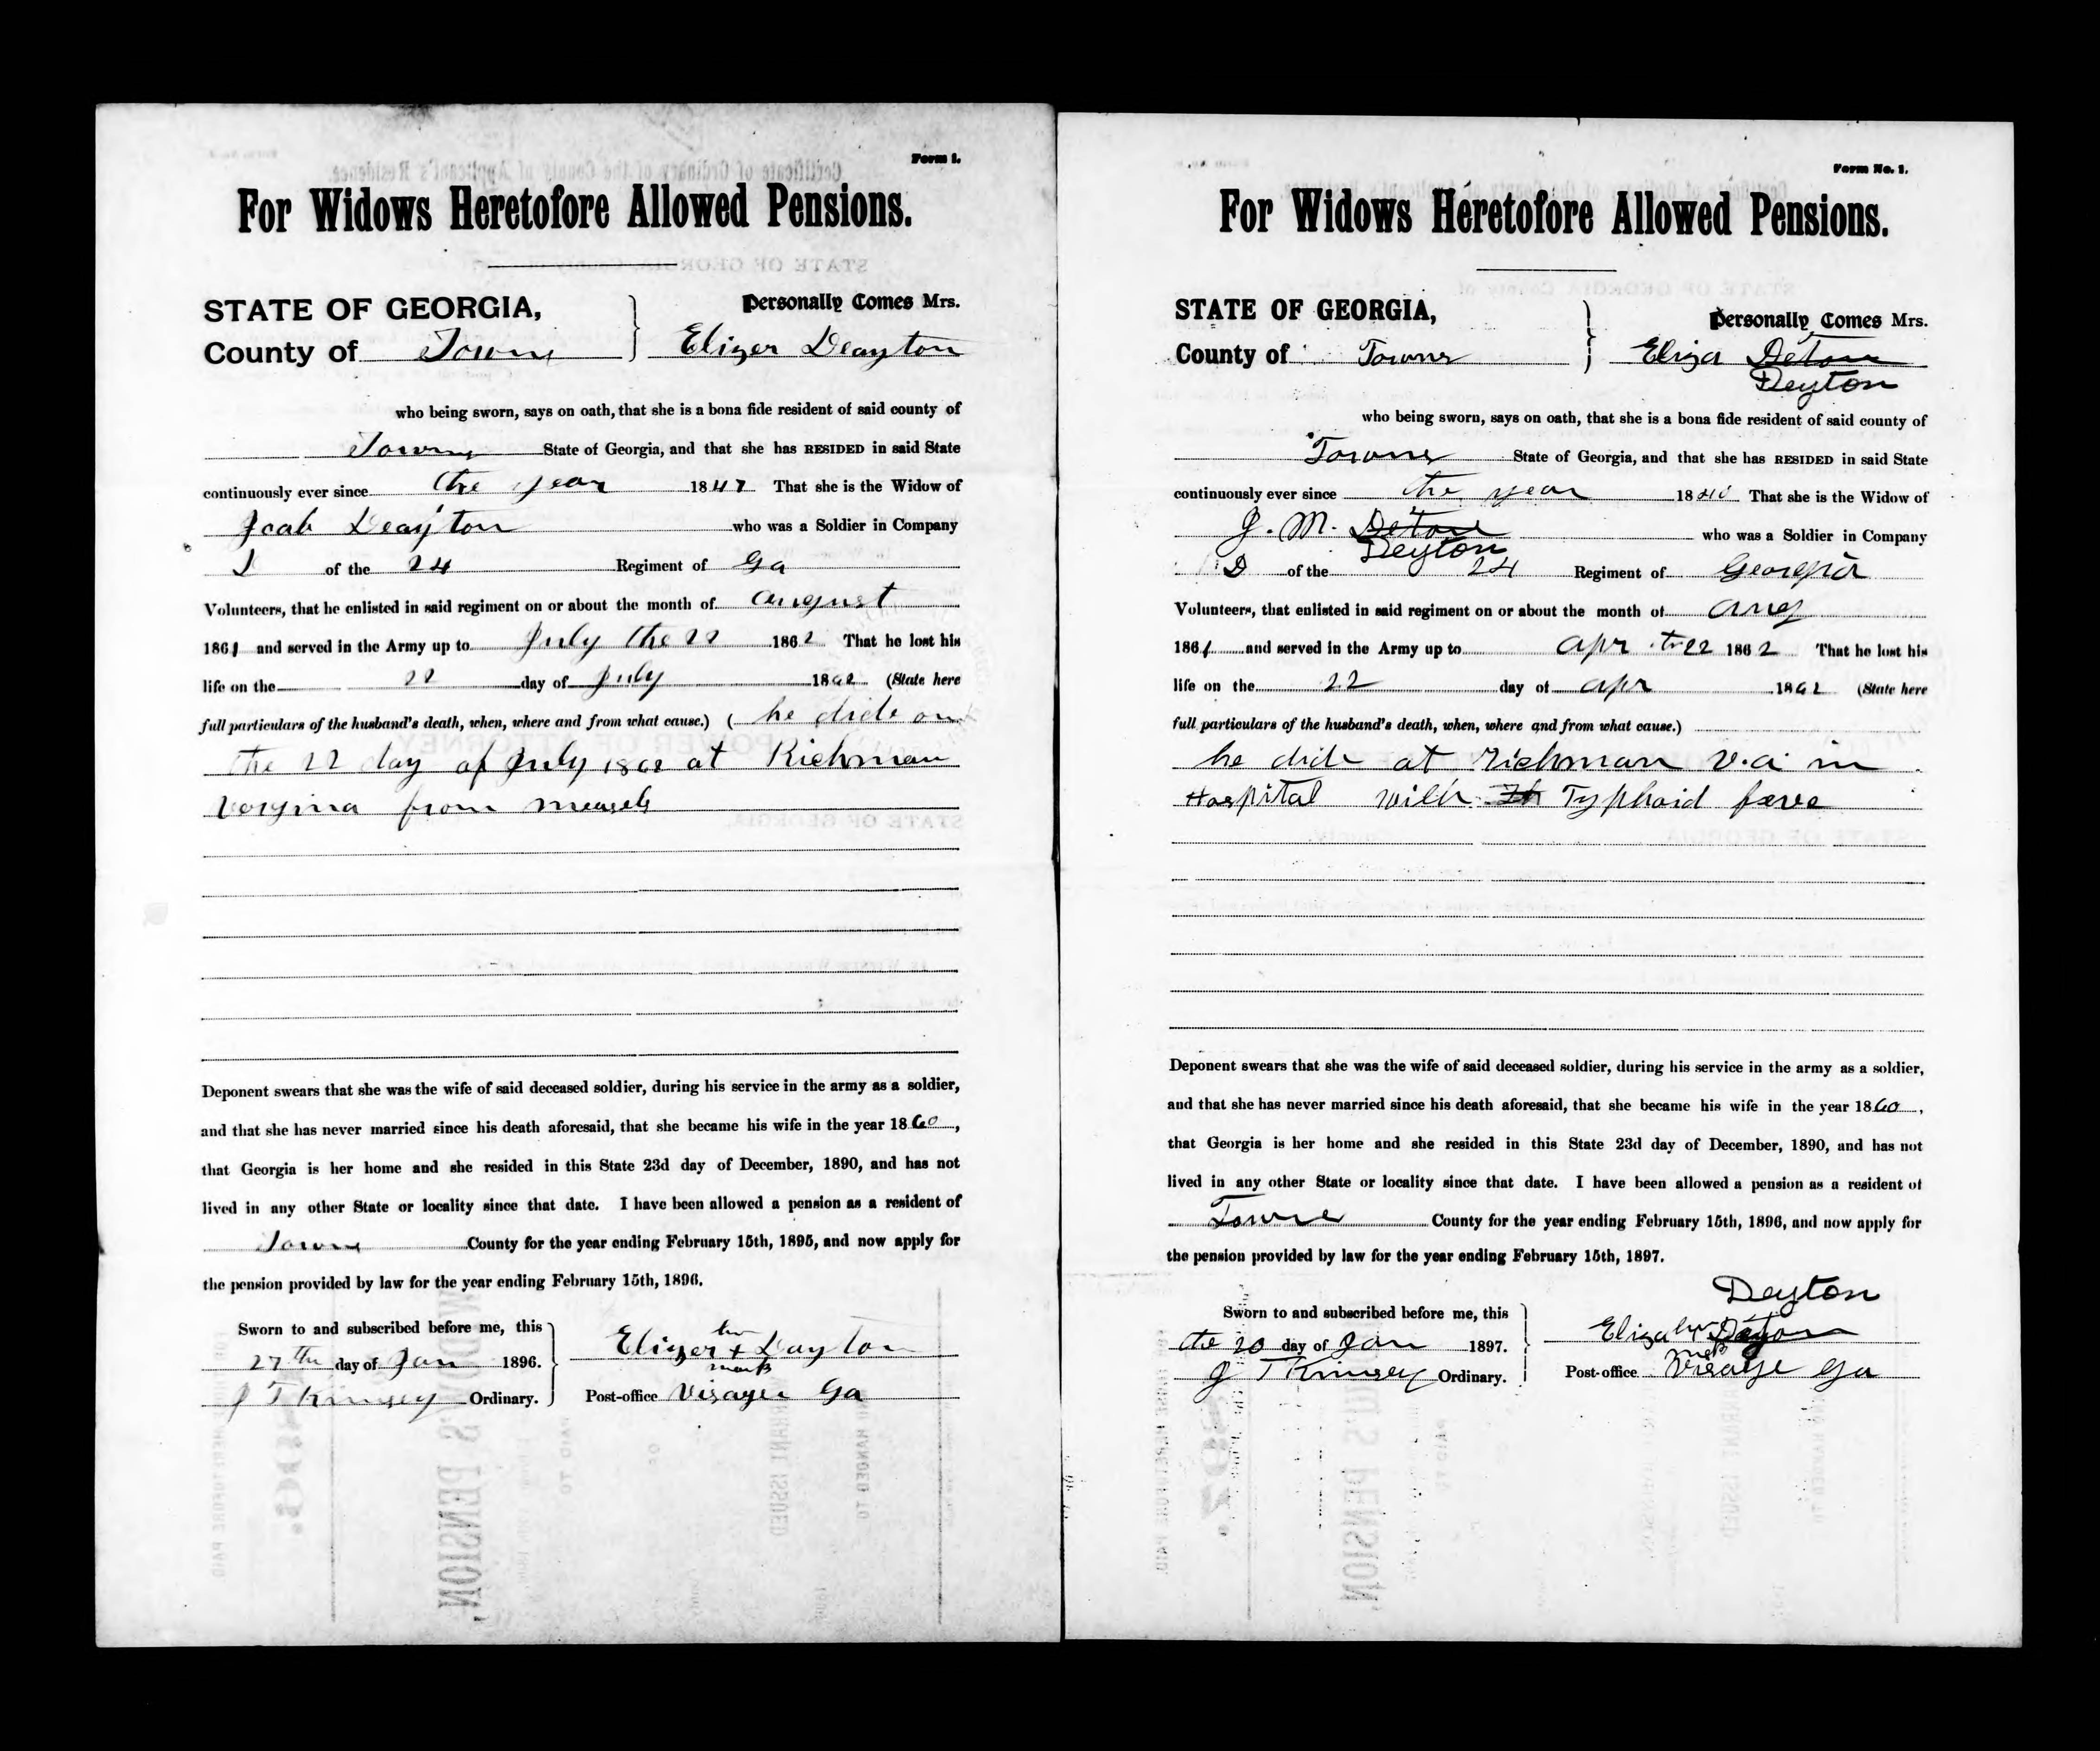 Form 1.
For Widows Heretofore Allowed Pensions.
STATE OF GEORGIA,
County of Towns
Personally Comes Mrs.
Elizer Deayton
who being sworn, says on oath, that she is a bona fide resident of said county of
Towns State of Georgia, and that she has RESIDED in said State
continuously ever since the year 1847 That she is the Widow of
Jcab Deayton who was a Soldier in Company
D of the 24 Regiment of Ga
Volunteers, that he enlisted in said regiment on or about the month of august
1861 and served in the Army up to July the 22 1862 That he lost his
life on the 22 day of July 1862 (State here
full particulars of the husband's death, when, where and from what cause.) ( he dide on
the 22 day of July 1862 at Richman
Vergina from measels
Deponent swears that she was the wife of said deceased soldier, during his service in the army as a soldier,
and that she has never married since his death aforesaid, that she became his wife in the year 1860,
that Georgia is her home and she resided in this State 23d day of December, 1890, and has not
lived in any other State or locality since that date. I have been allowed a pension as a resident of
Towns County for the year ending February 15th, 1895, and now apply for
the pension provided by law for the year ending February 15th, 1896.
Sworn to and subscribed before me, this
27th day of Jan 1896.
J T Kimsey Ordinary.
her
Elizer + Dayton
mark
Post-office Visage Ga
Form No. 1.
For Widows Heretofore Allowed Pensions.
STATE OF GEORGIA,
County of Towns
Personally Comes Mrs.
Eliza Deton
Deyton
who being sworn, says on oath, that she is a bona fide resident of said county of
Towns State of Georgia, and that she has RESIDED in said State
continuously ever since the year 1840 That she is the Widow of
J. M. Deton who was a Soldier in Company
Deyton
D of the 24 Regiment of Georgia
Volunteers, that enlisted in said regiment on or about the month of aug
1861 and served in the Army up to apr 22 1862 That he lost his
life on the 22 day of apr 1862 (State here
full particulars of the husband's death, when, where and from what cause.)
he dide at Richman V.a in
Hospital with Typhoid feve
Deponent swears that she was the wife of said deceased soldier, during his service in the army as a soldier,
and that she has never married since his death aforesaid, that she became his wife in the year 1860,
that Georgia is her home and she resided in this State 23d day of December, 1890, and has not
lived in any other State or locality since that date. I have been allowed a pension as a resident of
Towns County for the year ending February 15th, 1896, and now apply for
the pension provided by law for the year ending February 15th, 1897.
Sworn to and subscribed before me, this
the 20 day of Jan 1897.
J T Kimsey Ordinary.
Deyton
Eliza her Deton
mark
Post-office Visage Ga